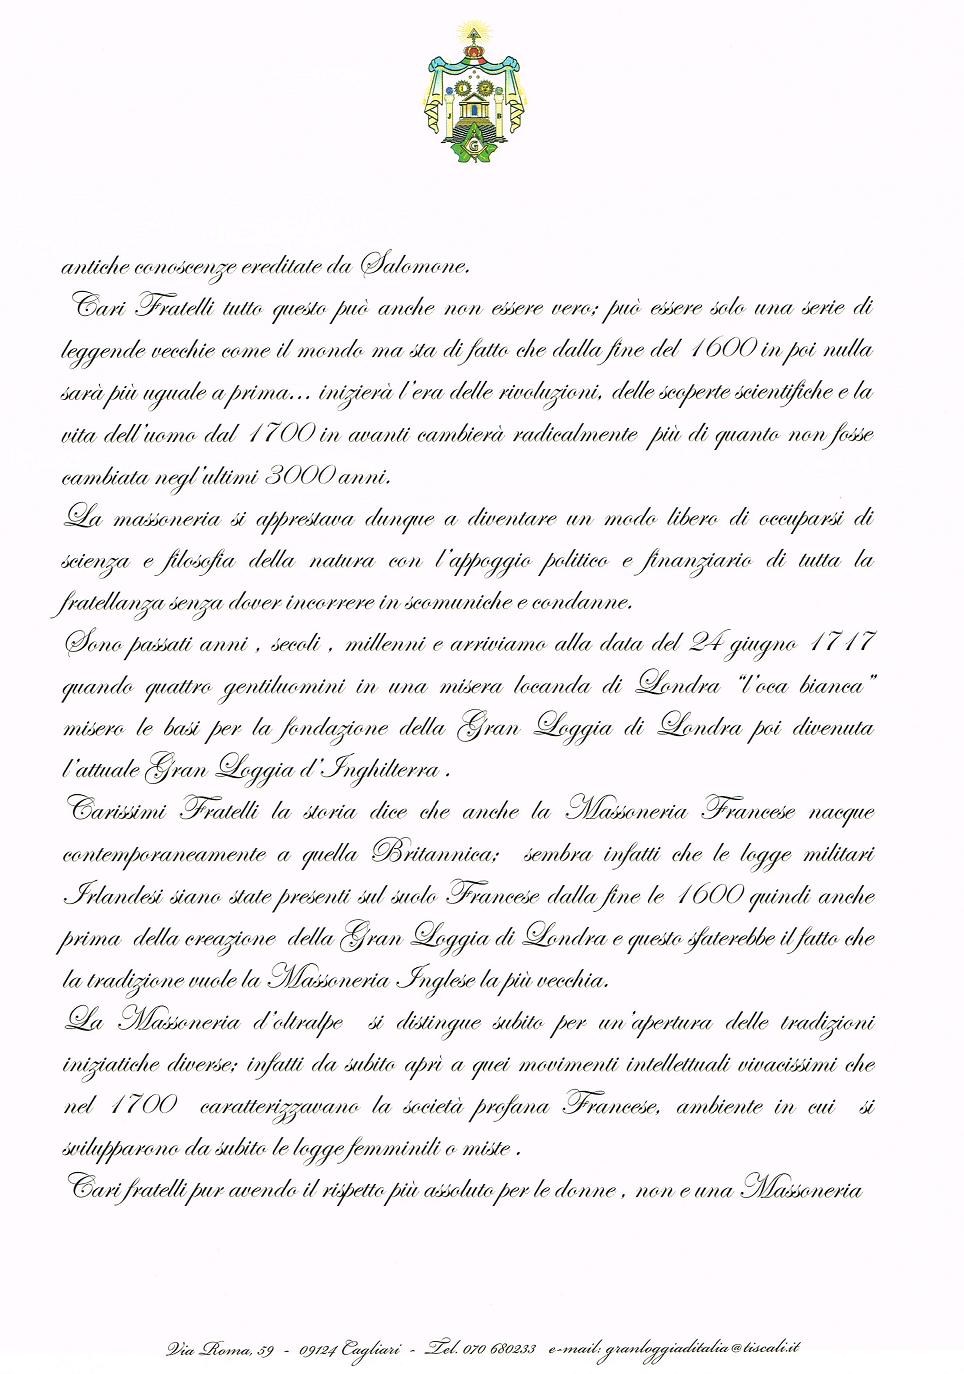 J B
G
antiche conoscenze ereditate da Salomone.
Cari Fratelli tutto questo può anche non essere vero; può essere solo una serie di
leggende vecchie come il mondo ma sta di fatto che dalla fine del 1600 in poi nulla
sarà più uguale a prima... inizierà l'era delle rivoluzioni, delle scoperte scientifiche e la
vita dell'uomo dal 1700 in avanti cambierà radicalmente più di quanto non fosse
cambiata negl'ultimi 3000 anni.
La massoneria si apprestava dunque a diventare un modo libero di occuparsi di
scienza e filosofia della natura con l'appoggio politico e finanziario di tutta la
fratellanza senza dover incorrere in scomuniche e condanne.
Sono passati anni , secoli , millenni e arriviamo alla data del 24 giugno 1717
quando quattro gentiluomini in una misera locanda di Londra "l'oca bianca"
misero le basi per la fondazione della Gran Loggia di Londra poi divenuta
l'attuale Gran Loggia d'Inghilterra .
Carissimi Fratelli la storia dice che anche la Massoneria Francese nacque
contemporaneamente a quella Britannica; sembra infatti che le logge militari
Irlandesi siano state presenti sul suolo Francese dalla fine le 1600 quindi anche
prima della creazione della Gran Loggia di Londra e questo sfaterebbe il fatto che
la tradizione vuole la Massoneria Inglese la più vecchia.
La Massoneria d'oltralpe si distingue subito per un'apertura delle tradizioni
iniziatiche diverse; infatti da subito aprì a quei movimenti intellettuali vivacissimi che
nel 1700 caratterizzavano la società profana Francese, ambiente in cui si
svilupparono da subito le logge femminili o miste .
Cari fratelli pur avendo il rispetto più assoluto per le donne , non e una Massoneria
Via Roma, 59 - 09124 Cagliari - Tel. 070 680233 e-mail: granloggiaditalia@tiscali.it